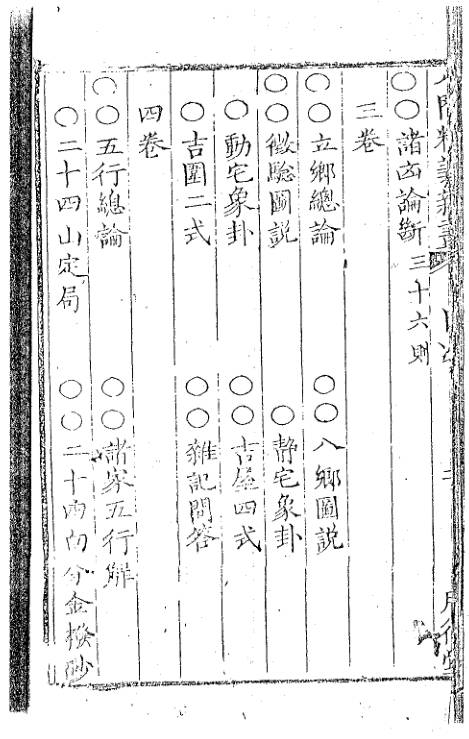 ○○諸凶論斷三十六則
三卷
○○立鄉總論 ○○八鄉圖説
○○徵驗圖説 ○静宅象卦
○動宅象卦 ○○吉屋四式
○吉圍二式 ○○雜記問答
四卷
○○五行總論 ○○諸家五行解
○二十四山定局 ○○二十四向分金撥砂